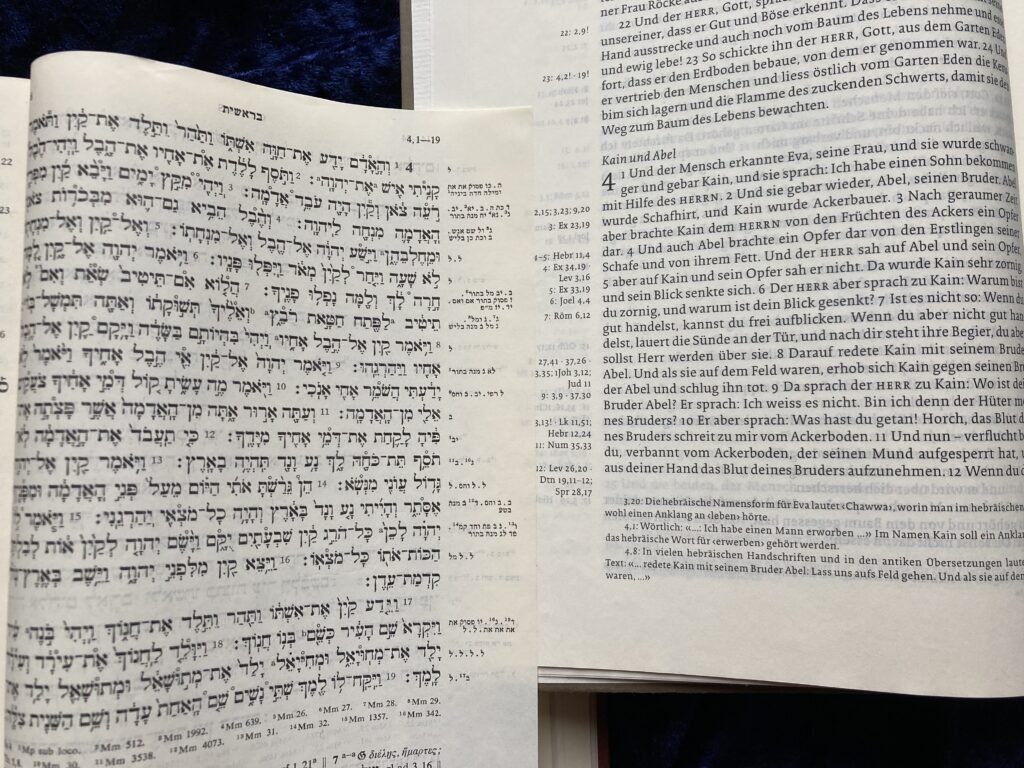 בראשית
4,1—19
4 1 וְהָאָדָם יָדַע אֶת־חַוָּה אִשְׁתּוֹ וַתַּהַר וַתֵּלֶד אֶת־קַיִן וַתֹּאמֶר
קָנִיתִי אִישׁ אֶת־יְהוָה׃ 2 וַתֹּסֶף לָלֶדֶת אֶת־אָחִיו אֶת־הָבֶל וַיְהִי־הֶבֶל
רֹעֵה צֹאן וְקַיִן הָיָה עֹבֵד אֲדָמָה׃ 3 וַיְהִי מִקֵּץ יָמִים וַיָּבֵא קַיִן
הָאֲדָמָה מִנְחָה לַיהוָה׃ 4 וְהֶבֶל הֵבִיא גַם־הוּא מִבְּכֹרוֹת
וּמֵחֶלְבֵהֶן וַיִּשַׁע יְהוָה אֶל־הֶבֶל וְאֶל־מִנְחָתוֹ׃ 5 וְאֶל־קַיִן
לֹא שָׁעָה וַיִּחַר לְקַיִן מְאֹד וַיִּפְּלוּ פָּנָיו׃ 6 וַיֹּאמֶר יְהוָה אֶל־קָיִן
חָרָה לָךְ וְלָמָּה נָפְלוּ פָנֶיךָ׃ 7 הֲלוֹא אִם־תֵּיטִיב שְׂאֵת וְאִם
תֵיטִיב לַפֶּתַח חַטָּאת רֹבֵץ וְאֵלֶיךָ תְּשׁוּקָתוֹ וְאַתָּה
8 וַיֹּאמֶר קַיִן אֶל־הֶבֶל אָחִיו וַיְהִי בִּהְיוֹתָם בַּשָּׂדֶה וַיָּקָם קַיִן
אָחִיו וַיַּהַרְגֵהוּ׃ 9 וַיֹּאמֶר יְהוָה אֶל־קַיִן אֵי הֶבֶל אָחִיךָ וַיֹּאמֶר
יָדַעְתִּי הֲשֹׁמֵר אָחִי אָנֹכִי׃ 10 וַיֹּאמֶר מֶה עָשִׂיתָ קוֹל דְּמֵי אָחִיךָ
אֵלַי מִן־הָאֲדָמָה׃ 11 וְעַתָּה אָרוּר אָתָּה מִן־הָאֲדָמָה אֲשֶׁר פָּצְתָה
פִּיהָ לָקַחַת אֶת־דְּמֵי אָחִיךָ מִיָּדֶךָ׃ 12 כִּי תַעֲבֹד אֶת־הָאֲדָמָה
תֹסֵף תֵּת־כֹּחָהּ לָךְ נָע וָנָד תִּהְיֶה בָאָרֶץ׃ 13 וַיֹּאמֶר קַיִן
גָּדוֹל עֲוֹנִי מִנְּשֹׂא׃ 14 הֵן גֵּרַשְׁתָּ אֹתִי הַיּוֹם מֵעַל פְּנֵי הָאֲדָמָה
אֶסָּתֵר וְהָיִיתִי נָע וָנָד בָּאָרֶץ וְהָיָה כָל־מֹצְאִי יַהַרְגֵנִי׃ 15 וַיֹּאמֶר
יְהוָה לָכֵן כָּל־הֹרֵג קַיִן שִׁבְעָתַיִם יֻקָּם וַיָּשֶׂם יְהוָה לְקַיִן אוֹת
הַכּוֹת־אֹתוֹ כָּל־מֹצְאוֹ׃ 16 וַיֵּצֵא קַיִן מִלִּפְנֵי יְהוָה וַיֵּשֶׁב בְּאֶרֶץ
קִדְמַת־עֵדֶן׃
17 וַיֵּדַע קַיִן אֶת־אִשְׁתּוֹ וַתַּהַר וַתֵּלֶד אֶת־חֲנוֹךְ וַיְהִי בֹּנֶה
וַיִּקְרָא שֵׁם הָעִיר כְּשֵׁם בְּנוֹ חֲנוֹךְ׃ 18 וַיִּוָּלֵד לַחֲנוֹךְ אֶת־עִירָד וְעִירָד
יָלַד אֶת־מְחוּיָאֵל וּמְחִיּיָאֵל יָלַד אֶת־מְתוּשָׁאֵל וּמְתוּשָׁאֵל יָלַד
לָמֶךְ׃ 19 וַיִּקַּח־לוֹ לֶמֶךְ שְׁתֵּי נָשִׁים שֵׁם הָאַחַת עָדָה וְשֵׁם הַשֵּׁנִית
Mp sub loco. Mm 512. Mm 1992. Mm 639. Mm 26. Mm 27. Mm 28. Mm 29.
Mm 30. Mm 3538. Mm 4073. Mm 31. Mm 32. Mm 1357. Mm 342.
1,21ᵃ ‖ 7 ᵃ⁻ᵃ 𝔊 διέλῃς, ἥμαρτες;
ner Frau Röcke
22 Und der HERR, Gott,
unsereiner, dass er Gut und Böse erkennt. Dass
Hand ausstrecke und auch noch vom Baum des Lebens nehme und
und ewig lebe! 23 So schickte ihn der HERR, Gott, aus dem Garten Eden
fort, dass er den Erdboden bebaue, von dem er genommen war. 24
er vertrieb den Menschen und liess östlich vom Garten Eden die
bim sich lagern und die Flamme des zuckenden Schwerts, damit sie
Weg zum Baum des Lebens bewachten.
22: 2,9!
23: 4,2! · 19!
Kain und Abel
4 1 Und der Mensch erkannte Eva, seine Frau, und sie wurde schwan-
ger und gebar Kain, und sie sprach: Ich habe einen Sohn bekommen
mit Hilfe des HERRN. 2 Und sie gebar wieder, Abel, seinen Bruder. Abel
wurde Schafhirt, und Kain wurde Ackerbauer. 3 Nach geraumer Zeit
aber brachte Kain dem HERRN von den Früchten des Ackers ein Opfer
dar. 4 Und auch Abel brachte ein Opfer dar von den Erstlingen seiner
Schafe und von ihrem Fett. Und der HERR sah auf Abel und sein Opfer,
5 aber auf Kain und sein Opfer sah er nicht. Da wurde Kain sehr zornig,
und sein Blick senkte sich. 6 Der HERR aber sprach zu Kain: Warum bist
du zornig, und warum ist dein Blick gesenkt? 7 Ist es nicht so: Wenn du
gut handelst, kannst du frei aufblicken. Wenn du aber nicht gut han-
delst, lauert die Sünde an der Tür, und nach dir steht ihre Begier, du aber
sollst Herr werden über sie. 8 Darauf redete Kain mit seinem Bruder
Abel. Und als sie auf dem Feld waren, erhob sich Kain gegen seinen
der Abel und schlug ihn tot. 9 Da sprach der HERR zu Kain: Wo ist dein
Bruder Abel? Er sprach: Ich weiss es nicht. Bin ich denn der Hüter
nes Bruders? 10 Er aber sprach: Was hast du getan! Horch, das Blut
nes Bruders schreit zu mir vom Ackerboden. 11 Und nun – verflucht
du, verbannt vom Ackerboden, der seinen Mund aufgesperrt hat,
aus deiner Hand das Blut deines Bruders aufzunehmen. 12 Wenn du
2,15; 3,23; 9,20
3: Ex 23,19
4–5: Hebr 11,4
4: Ex 34,19 ·
Lev 3,16
5: Ex 33,19
6: Joel 4,4
7: Röm 6,12
27,41 · 37,26 ·
3.35; 1Joh 3,12;
Jud 11
9: 3,9 · 37,30
3,13! · Lk 11,51;
Hebr 12,24
11: Num 35,33
12: Lev 26,20 ·
Dtn 19,11–12;
Spr 28,17
3,20: Die hebräische Namensform für Eva lautet ‹Chawwa›, worin man im hebräischen
wohl einen Anklang an ‹leben› hörte.
4,1: Wörtlich: «…: Ich habe einen Mann erworben …» Im Namen Kain soll ein Anklang
das hebräische Wort für ‹erwerben› gehört werden.
4,8: In vielen hebräischen Handschriften und in den antiken Übersetzungen lautet
Text: «… redete Kain mit seinem Bruder Abel: Lass uns aufs Feld gehen. Und als sie auf dem
waren, …»